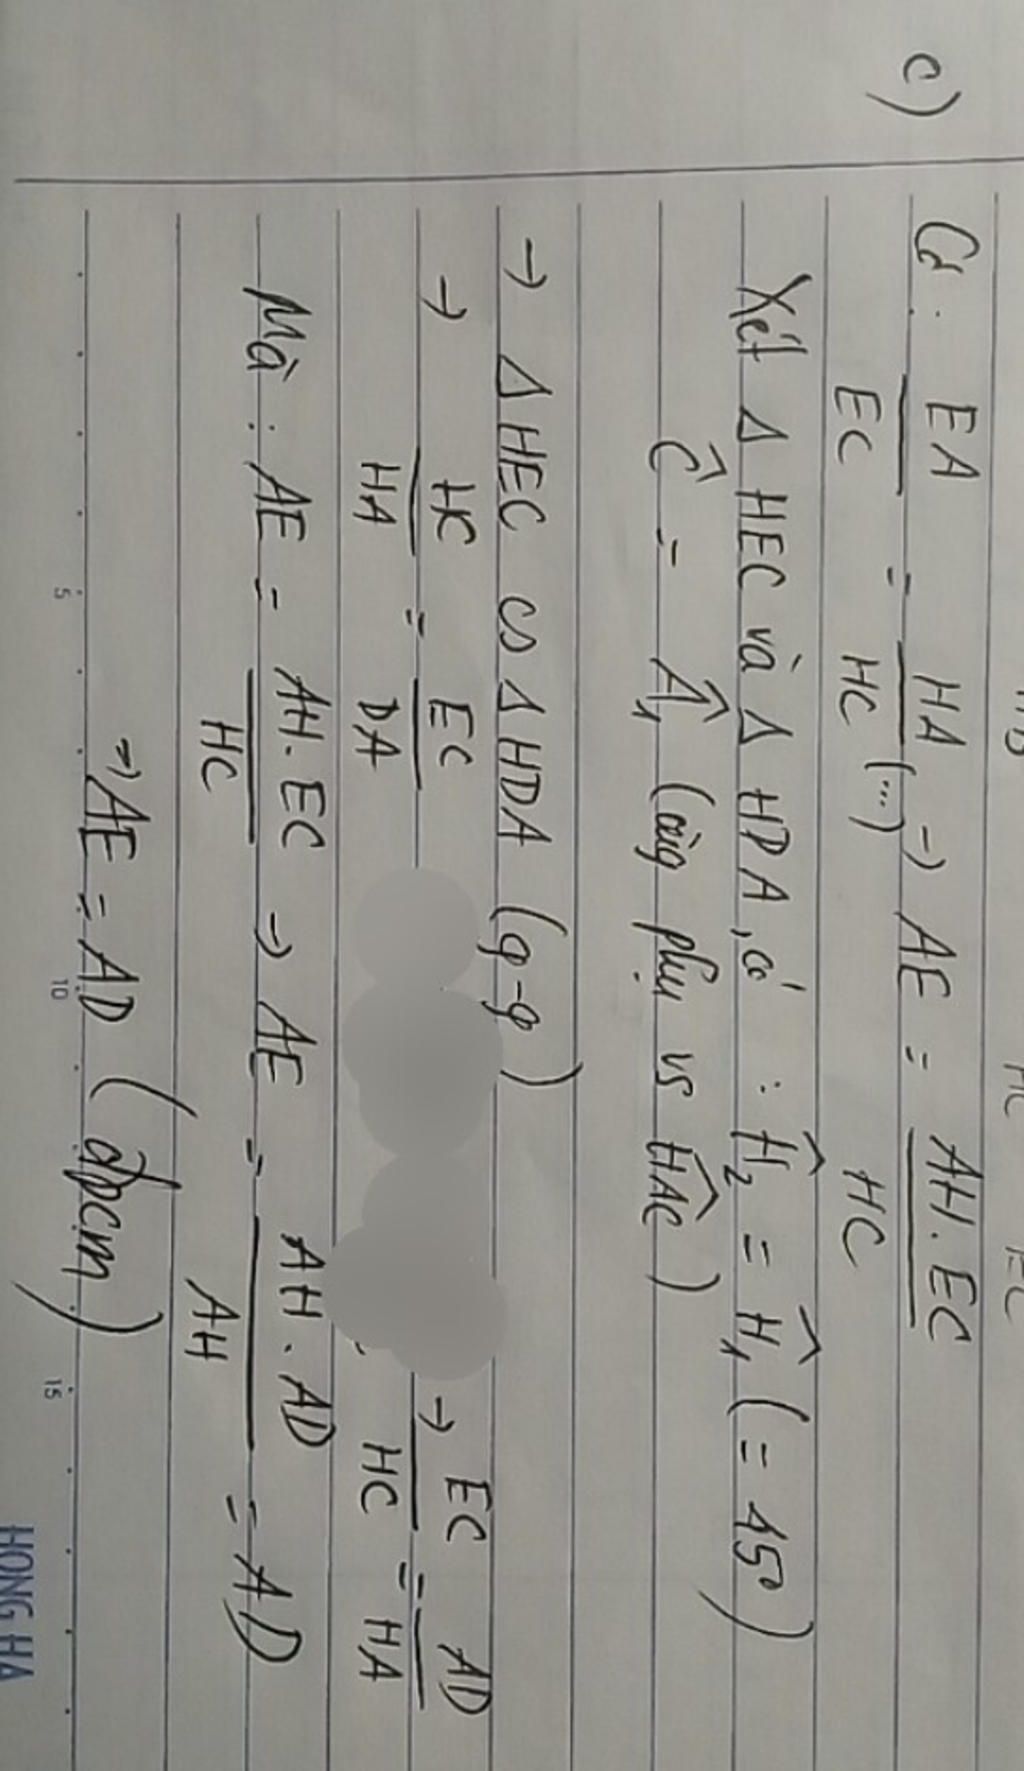 c) Có : EA/EC = HA/HC (....) → AE = AH.EC/HC
Xét Δ HEC và Δ HDA, có : Ĥ₂ = Ĥ₁ (= 45°)
Ĉ = Â₁ (cùng phụ vs HÂC)
→ Δ HEC ∽ Δ HDA (g-g)
→ HC/HA = EC/DA → EC/HC = AD/HA
Mà : AE = AH.EC/HC → AE = AH.AD/AH = AD
⇒ AE = AD (đpcm)
5 10 15
HONG HA